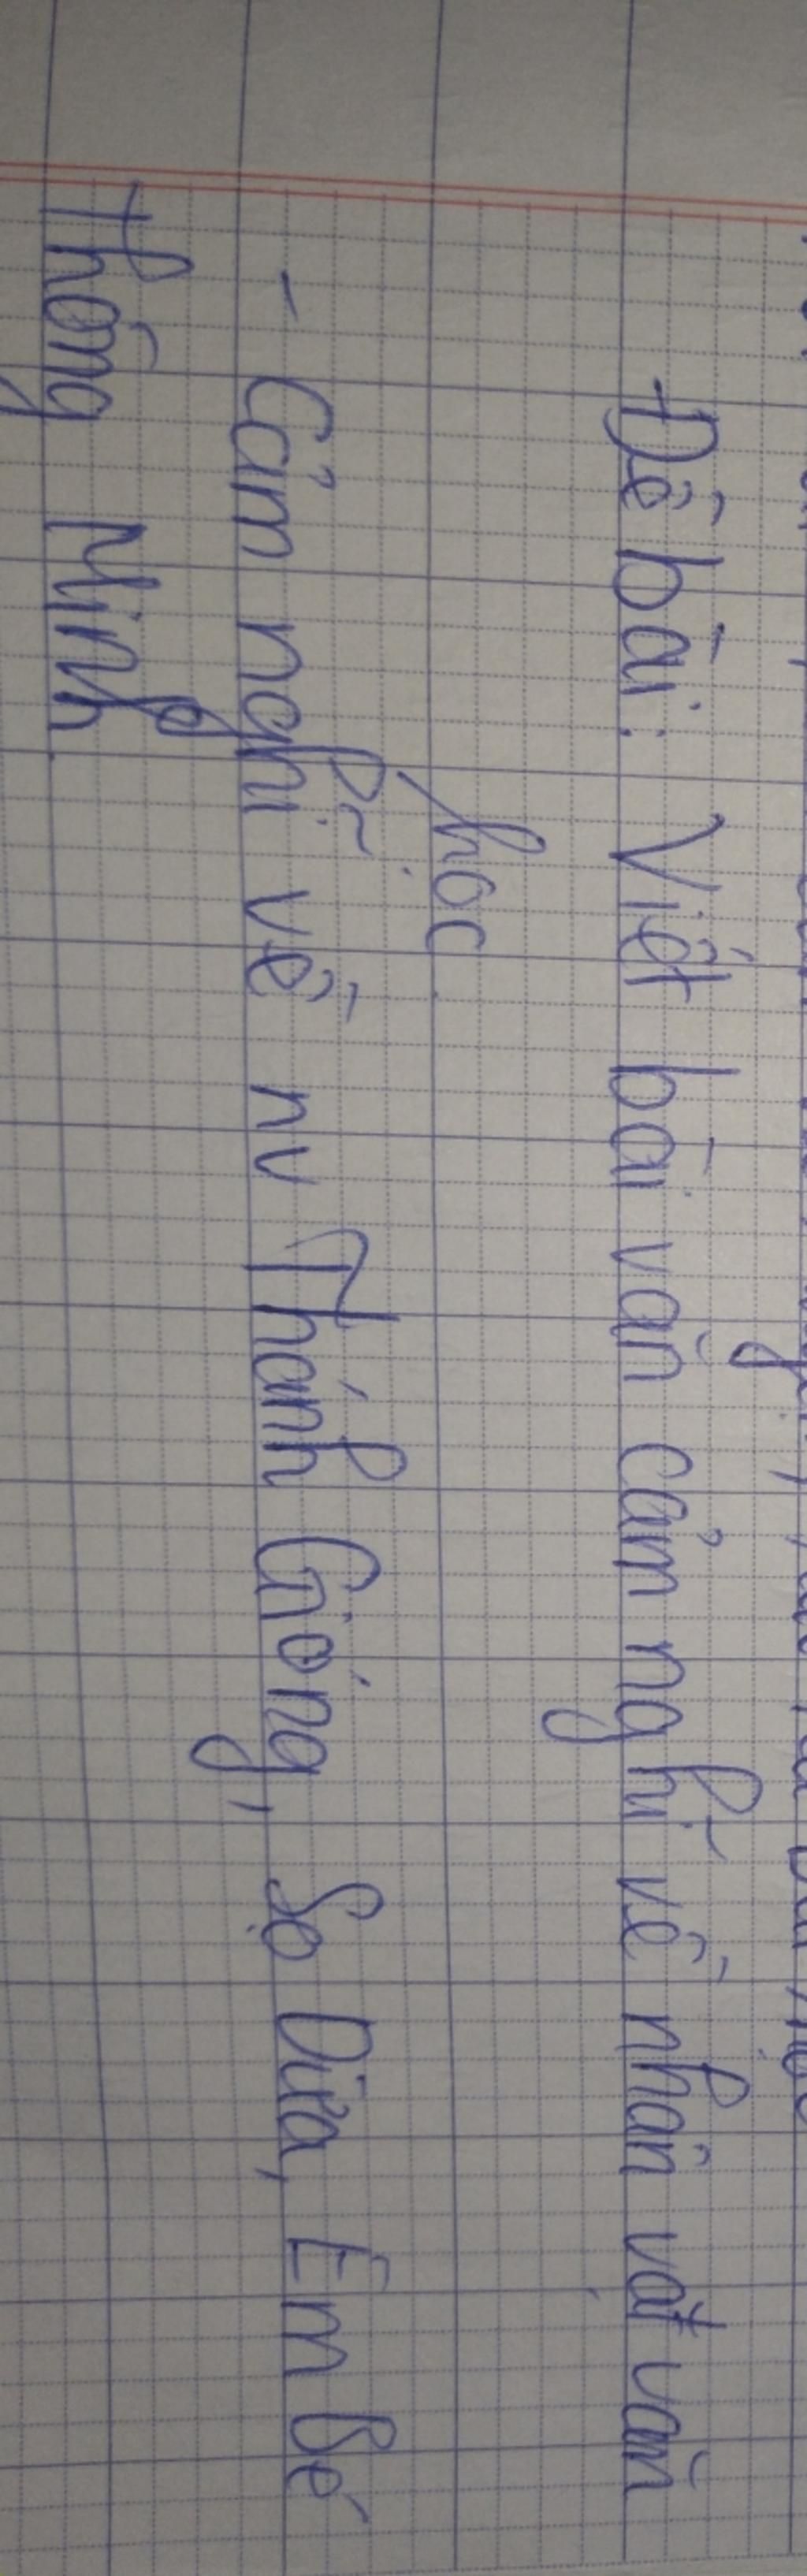 Đề bài: Viết bài văn cảm nghĩ về nhân vật văn
học.
- Cảm nghĩ về nv Thánh Gióng, Sọ Dừa, Em Bé
thông Minh.